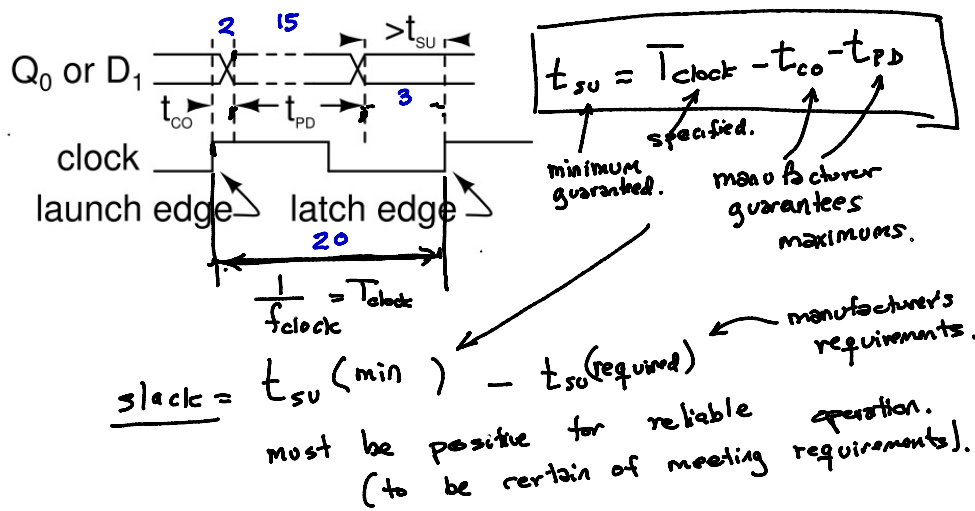 2 15
>tSU
Q0 or D1
3
tCO tPD
clock
launch edge latch edge
20
1/fclock = Tclock
tsu = Tclock - tco - tPD
specified.
minimum guaranteed.
manufacturer guarantees maximums.
manufacturer's requirements.
slack = tsu (min) - tsu (required)
must be positive for reliable operation.
(to be certain of meeting requirements).